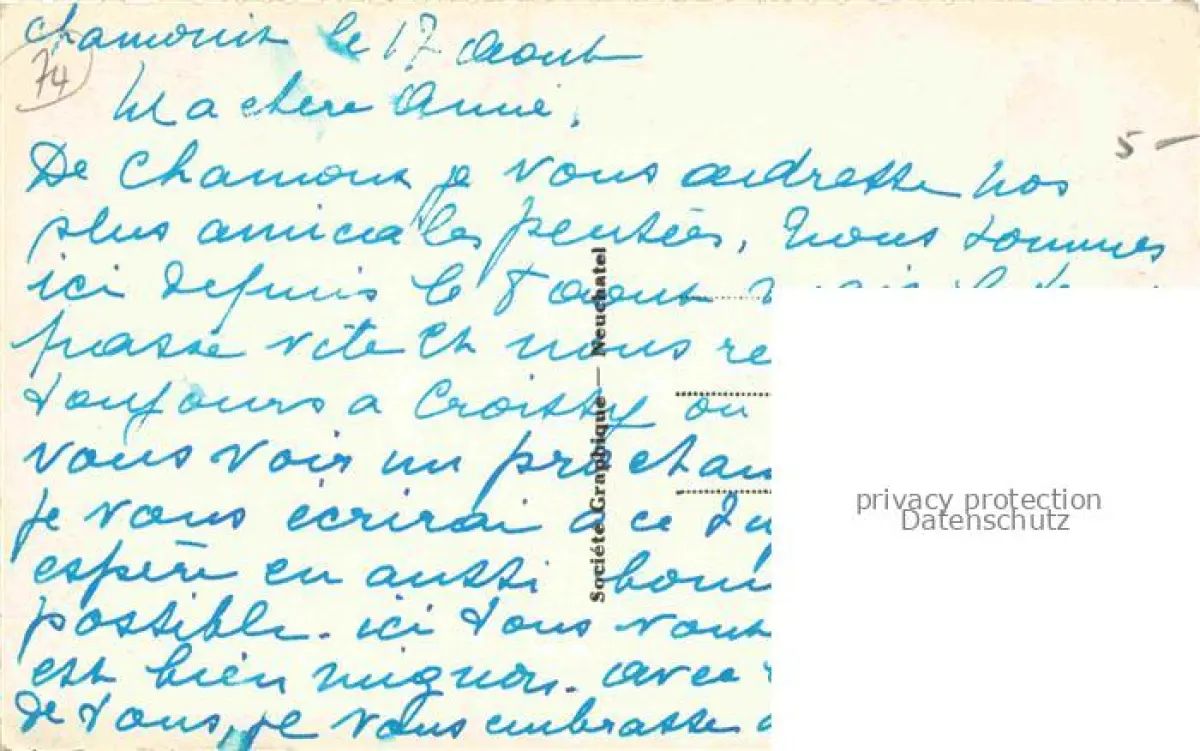 Chamonix le 17 Aout
74
Ma chere Annie,
5 —
De Chamonix je vous adresse nos
plus amicales pensées, Nous sommes
ici depuis le 8 aout mais le
passe vite et nous re
toujours a Croissy ou
vous voir un prochain
je vous écrirai a ce
espère en aussi bonn
possible. ici tous vont
est bien mignon. avec
de tous, je vous embrasse
Société Graphique — Neuchatel
privacy protection
Datenschutz